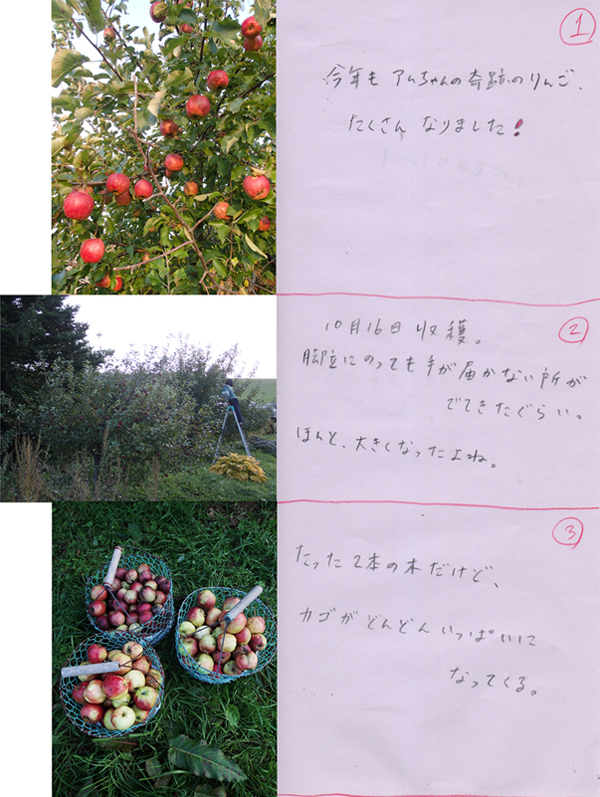 ①
今年も アムちゃんの奇跡のりんご、
たくさん なりました!
②
10月16日 収穫。
脚立にのっても手が届かない所が
でてきたぐらい。
ほんと、大きくなったよね。
③
たった2本の木だけど、
カゴが どんどん いっぱいに
なってくる。